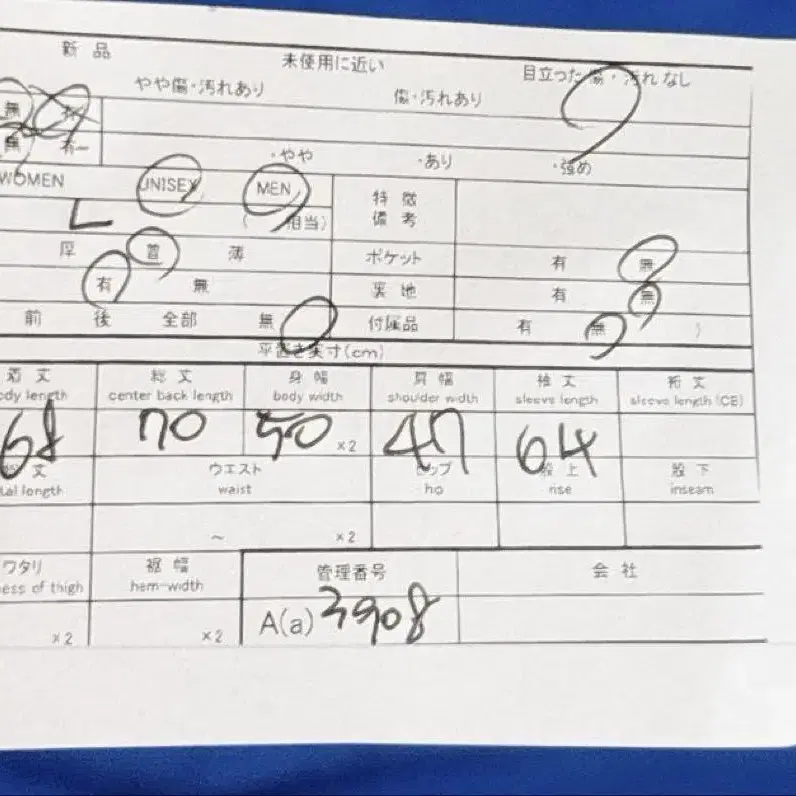 新品 未使用に近い 目立った傷・汚れなし
やや傷・汚れあり 傷・汚れあり
無 有
無 有ー ・やや ・あり ・強め
WOMEN UNISEX MEN 特徴
L ( 相当) 備考
厚 普 薄 ポケット 有 無
有 無 裏地 有 無
前 後 全部 無 付属品 有 無 )
平置き実寸(cm)
着丈 総丈 身幅 肩幅 袖丈 裄丈
dy length center back length body width shoulder width sleeve length sleeve length (CE)
68 70 50 ×2 47 64
丈 ウエスト ヒップ 股上 股下
al length waist hip rise inseam
~ ×2
ワタリ 裾幅 管理番号 会社
ess of thigh hem-width
×2 ×2 A(a) 3908